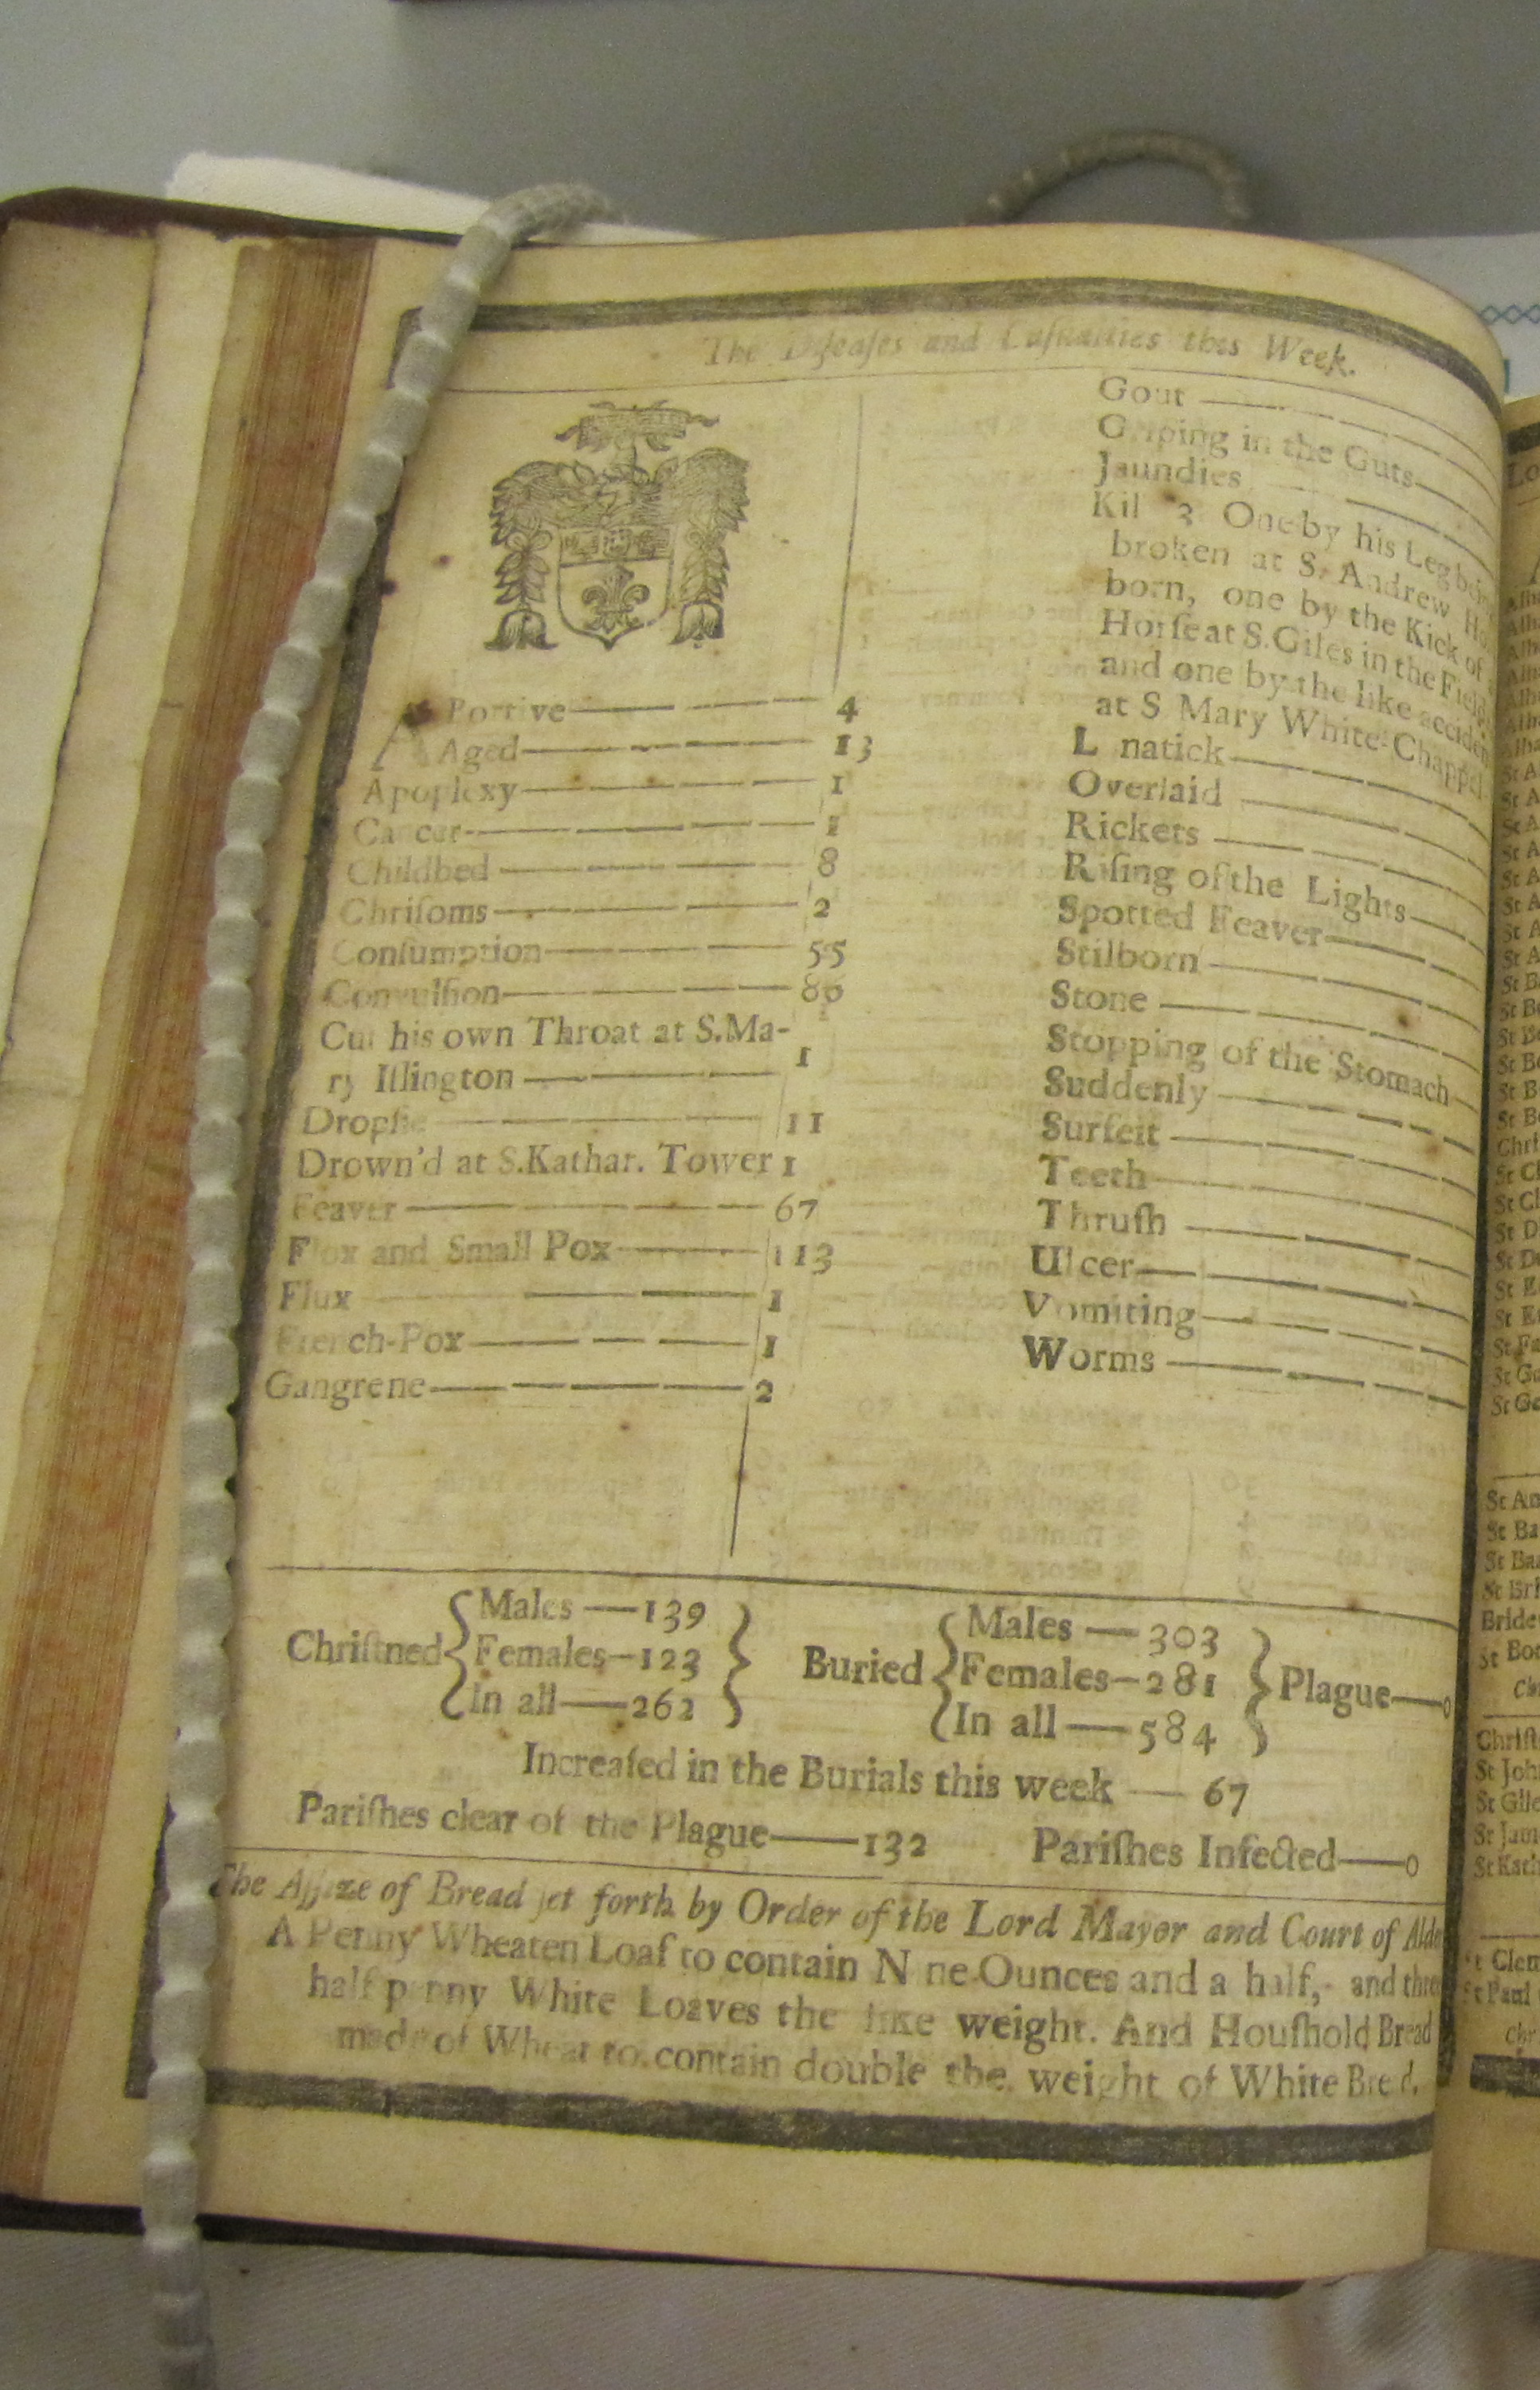 The Diseases and Casualties this Week.
A Bortive 4
Aged 13
Apoplexy 1
Cancer 1
Childbed 8
Chrisoms 2
Consumption 55
Convulsion
Cut his own Throat at S.Ma-
ry Islington 1
Dropsie 11
Drown'd at S.Kathar. Tower 1
Feaver 67
Flox and Small Pox 113
Flux 1
French-Pox 1
Gangrene 2
Gout
Griping in the Guts
Jaundies
Kil 3 One by his Leg being
broken at S. Andrew Ho
born, one by the Kick of a
Horse at S.Giles in the Fields
and one by the like acciden
at S Mary White-Chappel
L natick
Overlaid
Rickets
Rising of the Lights
Spotted Feaver
Stilborn
Stone
Stopping of the Stomach
Suddenly
Surfeit
Teeth
Thrush
Ulcer
Vomiting
Worms
Christned
Males —139
Females—123
In all—262
Buried
Males — 303
Females—281
In all — 584
Plague—0
Increased in the Burials this week — 67
Parishes clear of the Plague—132 Parishes Infected—0
The Assize of Bread set forth by Order of the Lord Mayor and Court of Alde
A Penny Wheaten Loaf to contain N ne Ounces and a half, and three
half p nny White Loaves the like weight. And Houshold Bread
made of Wheat to contain double the weight of White Bre d.